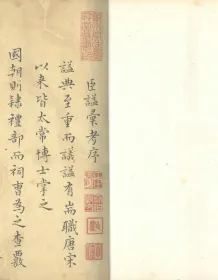 臣謚彙考序
謚典至重而議謚有耑職唐宋
以来皆太常博士掌之
國朝則隸禮部而祠曹為之查覈